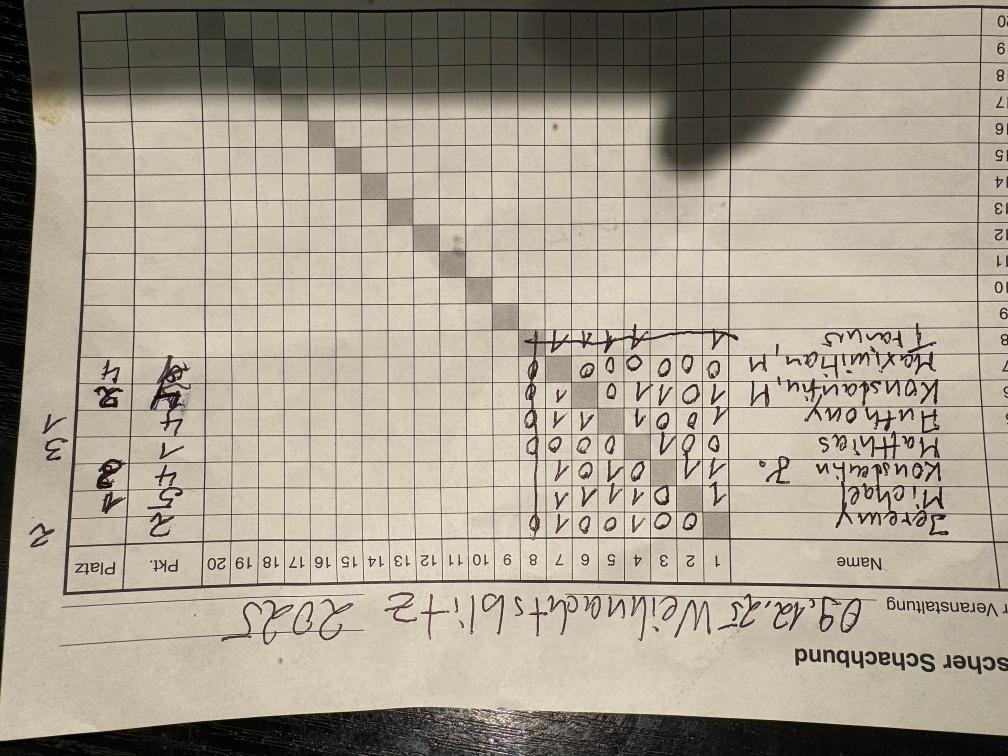 scher Schachbund
Veranstaltung 09.12.25 Weihnachtsblitz 2025
Name 1 2 3 4 5 6 7 8 9 10 11 12 13 14 15 16 17 18 19 20 Pkt. Platz
Jeremy 0 0 1 0 0 1 0 2 2
Michael 1 0 1 1 1 1 5 1
Konstantin J. 1 1 0 1 0 1 4
Matthias 0 0 1 0 0 0 0 1 3
Anthony 1 0 0 1 1 1 0 4 1
Konstantin, M 1 0 1 1 0 1 0
7 Maximilian, M 0 0 0 0 0 0 0 4
8 1 1 1 1 1
9
10
11
12
13
14
15
16
17
8
9